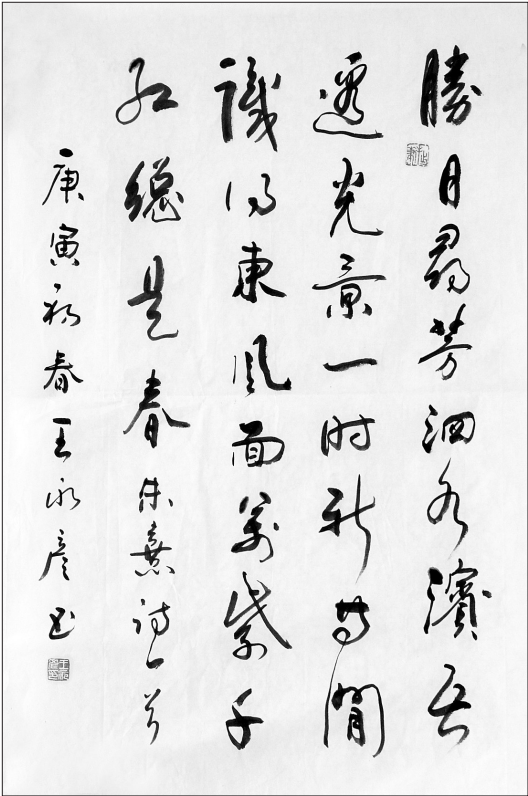 勝日尋芳泗水濱无
邊光景一时新等閒
識得東風面萬紫千
紅總是春朱熹詩一首
庚寅初春王永彦书